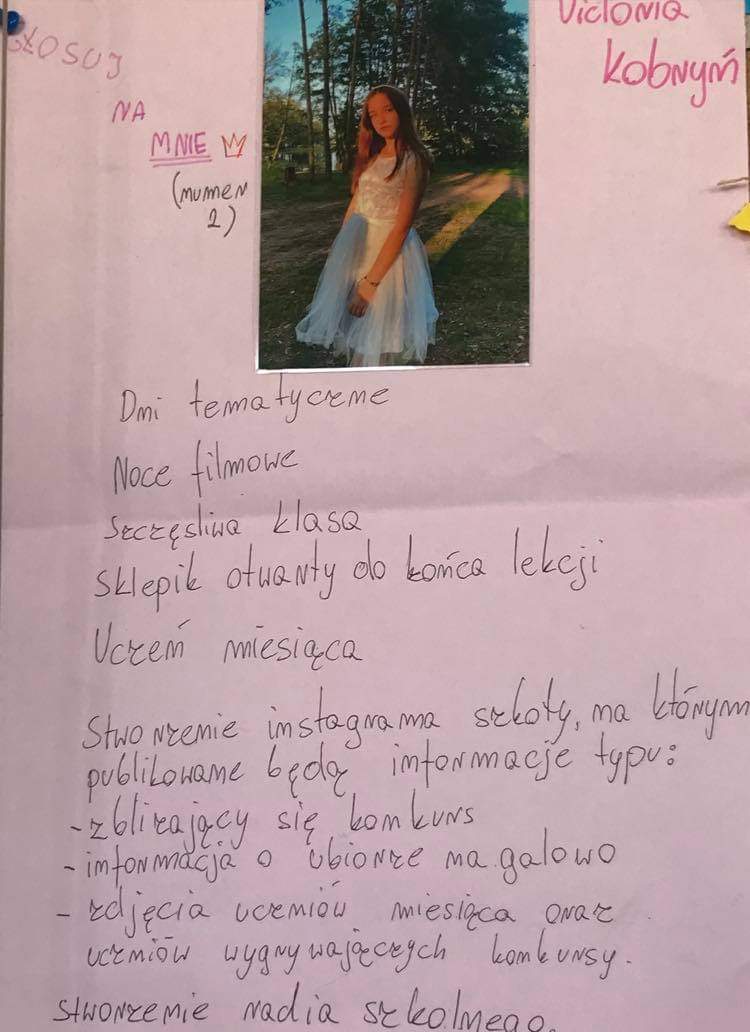 GŁOSUJ
NA
MNIE
(numer
2)
Victoria
Kobryń
Dni tematyczne
Noce filmowe
Szczęśliwa klasa
Sklepik otwarty do końca lekcji
Uczeń miesiąca
Stworzenie instagrama szkoły, na którym
publikowane będą informacje typu:
- zbliżający się konkurs
- informacja o ubiorze na galowo
- zdjęcia uczniów miesiąca oraz
uczniów wygrywających konkursy.
Stworzenie radia szkolnego.